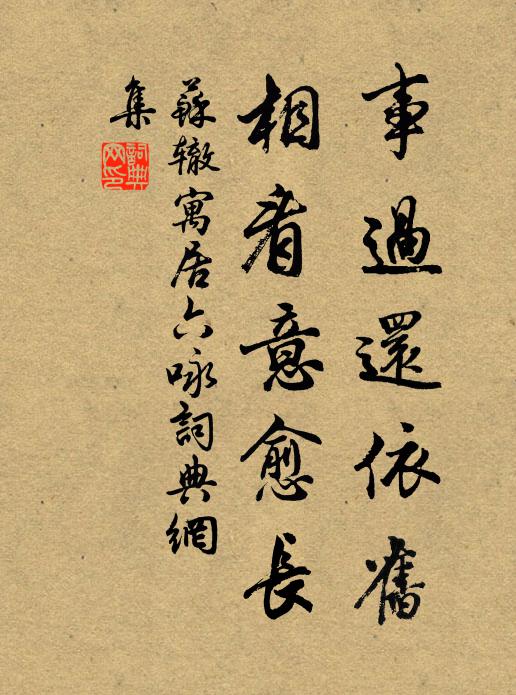 事過還依舊
相看意愈長
蘇辙寓居六咏詞典網
集
詞典網印